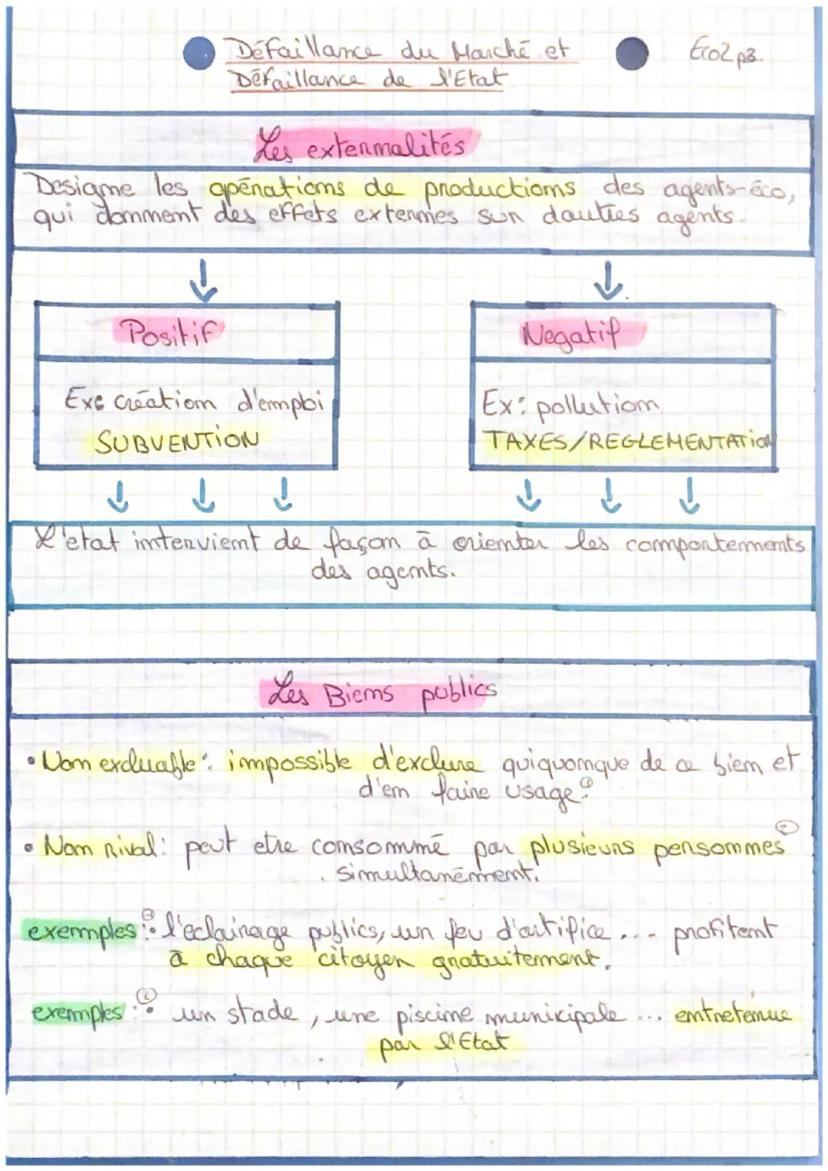 Défaillance du Marché et
Défaillance de l'Etat
Eco2 p3.
Les externalités
Designe les opérations de productions des agents-éco,
qui donnent des effets externes sur dautres agents.
Positif
Ex: création d'emploi
SUBVENTION
Negatif
Ex: pollution
TAXES/REGLEMENTATION
L'état intervient de façon à orienter les comportements
des agents.
Les Biens publics
• Non excluable : impossible d'exclure quiquonque de ce bien et
d'en faire usage.
• Non rival : peut etre consommé par plusieurs personnes
simultanément.
exemples : l'eclairage publics, un feu d'artifice... profitent
à chaque citoyen gratuitement.
exemples : un stade, une piscine municipale ... entretenue
par l'Etat